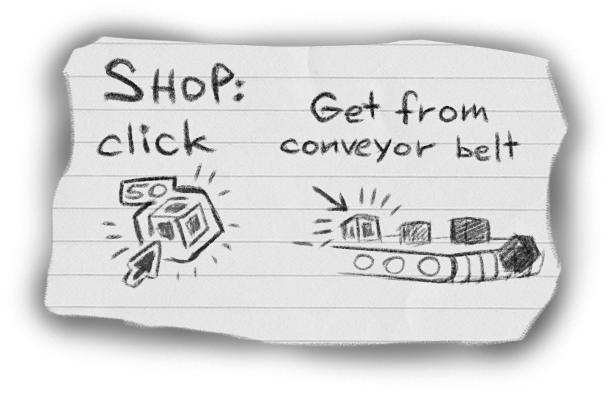 SHOP:
click
50
Get from
conveyor belt